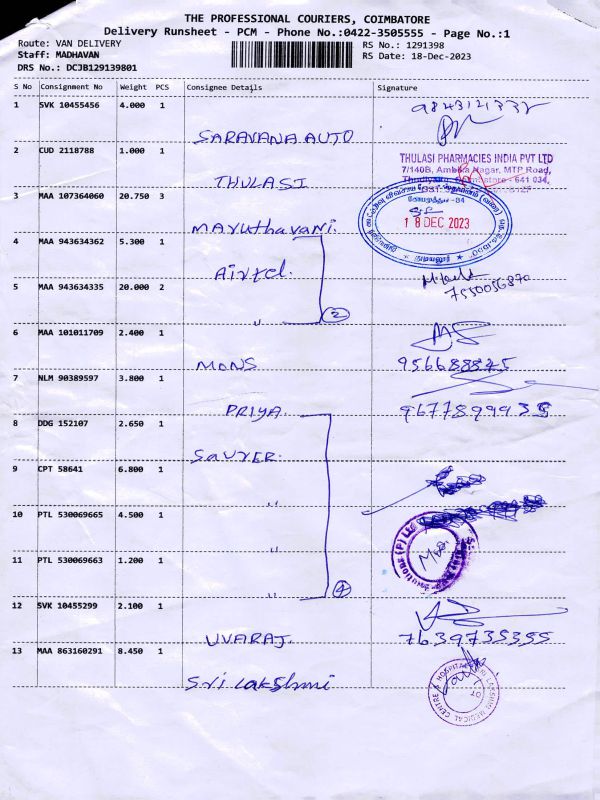 THE PROFESSIONAL COURIERS, COIMBATORE
Delivery Runsheet - PCM - Phone No.:0422-3505555 - Page No.:1
Route: VAN DELIVERY
RS No.: 1291398
Staff: MADHAVAN
RS Date: 18-Dec-2023
DRS No.: DCJB129139801
S No Consignment No Weight PCS Consignee Details Signature
1 SVK 10455456 4.000 1
SARAVANA AUTO
2 CUD 2118788 1.000 1
THULASI PHARMACIES INDIA PVT LTD
7/140B, Ambika Nagar, MTP Road,
THULASI
3 MAA 107364060 20.750 3
18 DEC 2023
Maruthavani.
4 MAA 943634362 5.300 1
Airtel.
5 MAA 943634335 20.000 2
7550056870
" 2
6 MAA 101011709 2.400 1
MONS 956688875
7 NLM 90389597 3.800 1
PRIYA. 9677899935
8 DDG 152107 2.650 1
SAVYER.
9 CPT 58641 6.800 1
"
10 PTL 530069665 4.500 1
"
11 PTL 530069663 1.200 1
" 4
12 SVK 10455299 2.100 1
UVARAJ. 7639735355
13 MAA 863160291 8.450 1
Sri Lakshmi